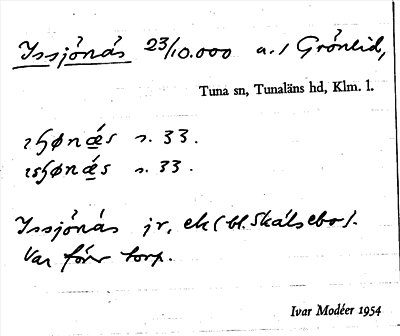 Yssjönäs 23/10.000 a. / Grönlid,
Tuna sn, Tunaläns hd, Klm. l.
s. 33.
s. 33.
Yssjönäs jr, ek (bl. Skälsebo).
Var förr torp.
Ivar Modéer 1954